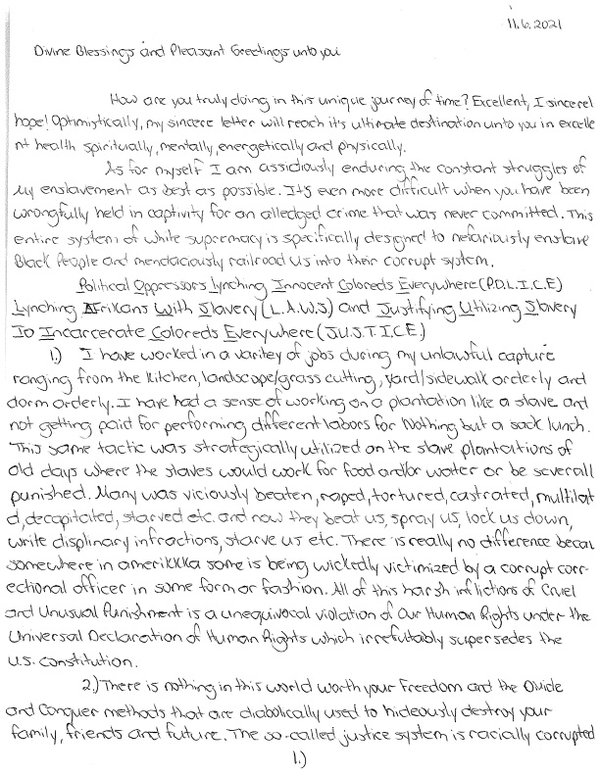 11.6.2021
Divine Blessings and Pleasant Greetings unto you
How are you truly doing in this unique journey of time? Excellent, I sincerel
hope! Optimistically, my sincere letter will reach it's ultimate destination unto you in excelle
nt health spiritually, mentally, energetically and physically.
As for myself I am assidiously enduring the constant struggles of
my enslavement as best as possible. It's even more difficult when you have been
wrongfully held in captivity for an alledged crime that was never committed. This
entire system of white supremacy is specifically designed to nefariously enslave
Black People and mendaciously railroad us into their corrupt system.
Political Oppressors Lynching Innocent Coloreds Everywhere (P.O.L.I.C.E)
Lynching Afrikans With Slavery (L.A.W.S) and Justifying Utilizing Slavery
To Incarcerate Coloreds Everywhere (J.U.S.T.I.C.E)
1.) I have worked in a varitey of jobs during my unlawful capture
ranging from the kitchen, landscape/grass cutting, yard/sidewalk orderly and
dorm orderly. I have had a sense of working on a plantation like a slave and
not getting paid for performing different labors for Nothing but a sack lunch.
This same tactic was strategically utilized on the slave plantations of
old days where the slaves would work for food and/or water or be severall
punished. Many was viciously beaten, raped, tortured, castrated, multilat
d, decapitated, starved etc. and now they beat us, spray us, lock us down,
write displinary infractions, starve us etc. There is really no difference becau
somewhere in amerikkka some is being wickedly victimized by a corrupt corr-
ectional officer in some form or fashion. All of this harsh inflictions of Cruel
and Unusual Punishment is a unequivocal violation of Our Human Rights under the
Universal Declaration of Human Rights which irrefutably supersedes the
U.S. constitution.
2.) There is nothing in this world worth your Freedom and the Divide
and Conquer methods that are diabolically used to hideously destroy your
family, friends and future. The so-called justice system is racially corrupted
1.)